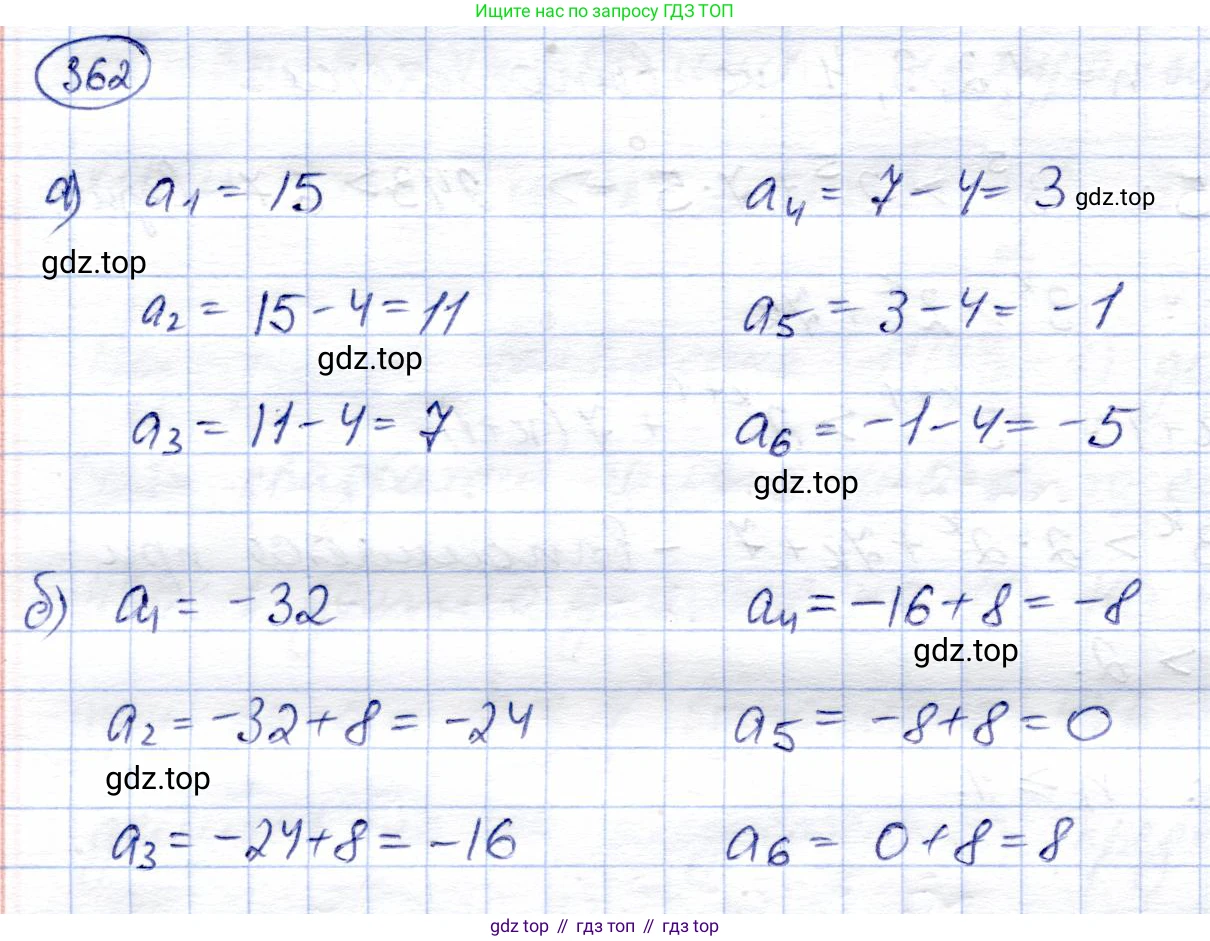 Ищите нас по запросу ГДЗ ТОП
362
а) a₁ = 15
a₄ = 7 - 4 = 3 gdz.top
gdz.top
a₂ = 15 - 4 = 11
a₅ = 3 - 4 = -1
gdz.top
a₃ = 11 - 4 = 7
a₆ = -1 - 4 = -5
gdz.top
б) a₁ = -32
a₄ = -16 + 8 = -8
gdz.top
a₂ = -32 + 8 = -24
a₅ = -8 + 8 = 0
gdz.top
a₃ = -24 + 8 = -16
a₆ = 0 + 8 = 8
gdz top // гдз топ // гдз top